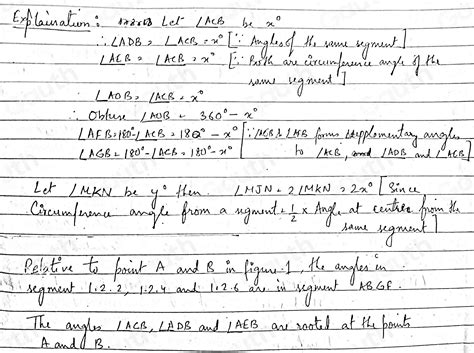 Explaination: Let ∠ACB be x°
∴ ∠ADB = ∠ACB = x° [∵ Angles of the same segment]
∠AEB = ∠ACB = x° [∵ Both are circumference angle of the
same segment]
∠AOB = ∠ACB = x°
∴ Obtuse ∠AOB = 360° - x°
∠AFB = 180° - ∠ACB = 180° - x° [∵ ∠AGB & ∠AFB forms supplementary angles
∠AGB = 180° - ∠ACB = 180° - x° to ∠ACB, and ∠ADB and ∠AEB]
Let ∠MKN be y° then ∠MJN = 2∠MKN = 2x° [Since
Circumference angle from a segment = 1/2 × Angle at centre from the
same segment]
Relative to point A and B in figure-1, the angles in
segment 1.2.2, 1.2.4 and 1.2.6 are in segment ABGF.
The angles ∠ACB, ∠ADB and ∠AEB are rooted at the points
A and B.